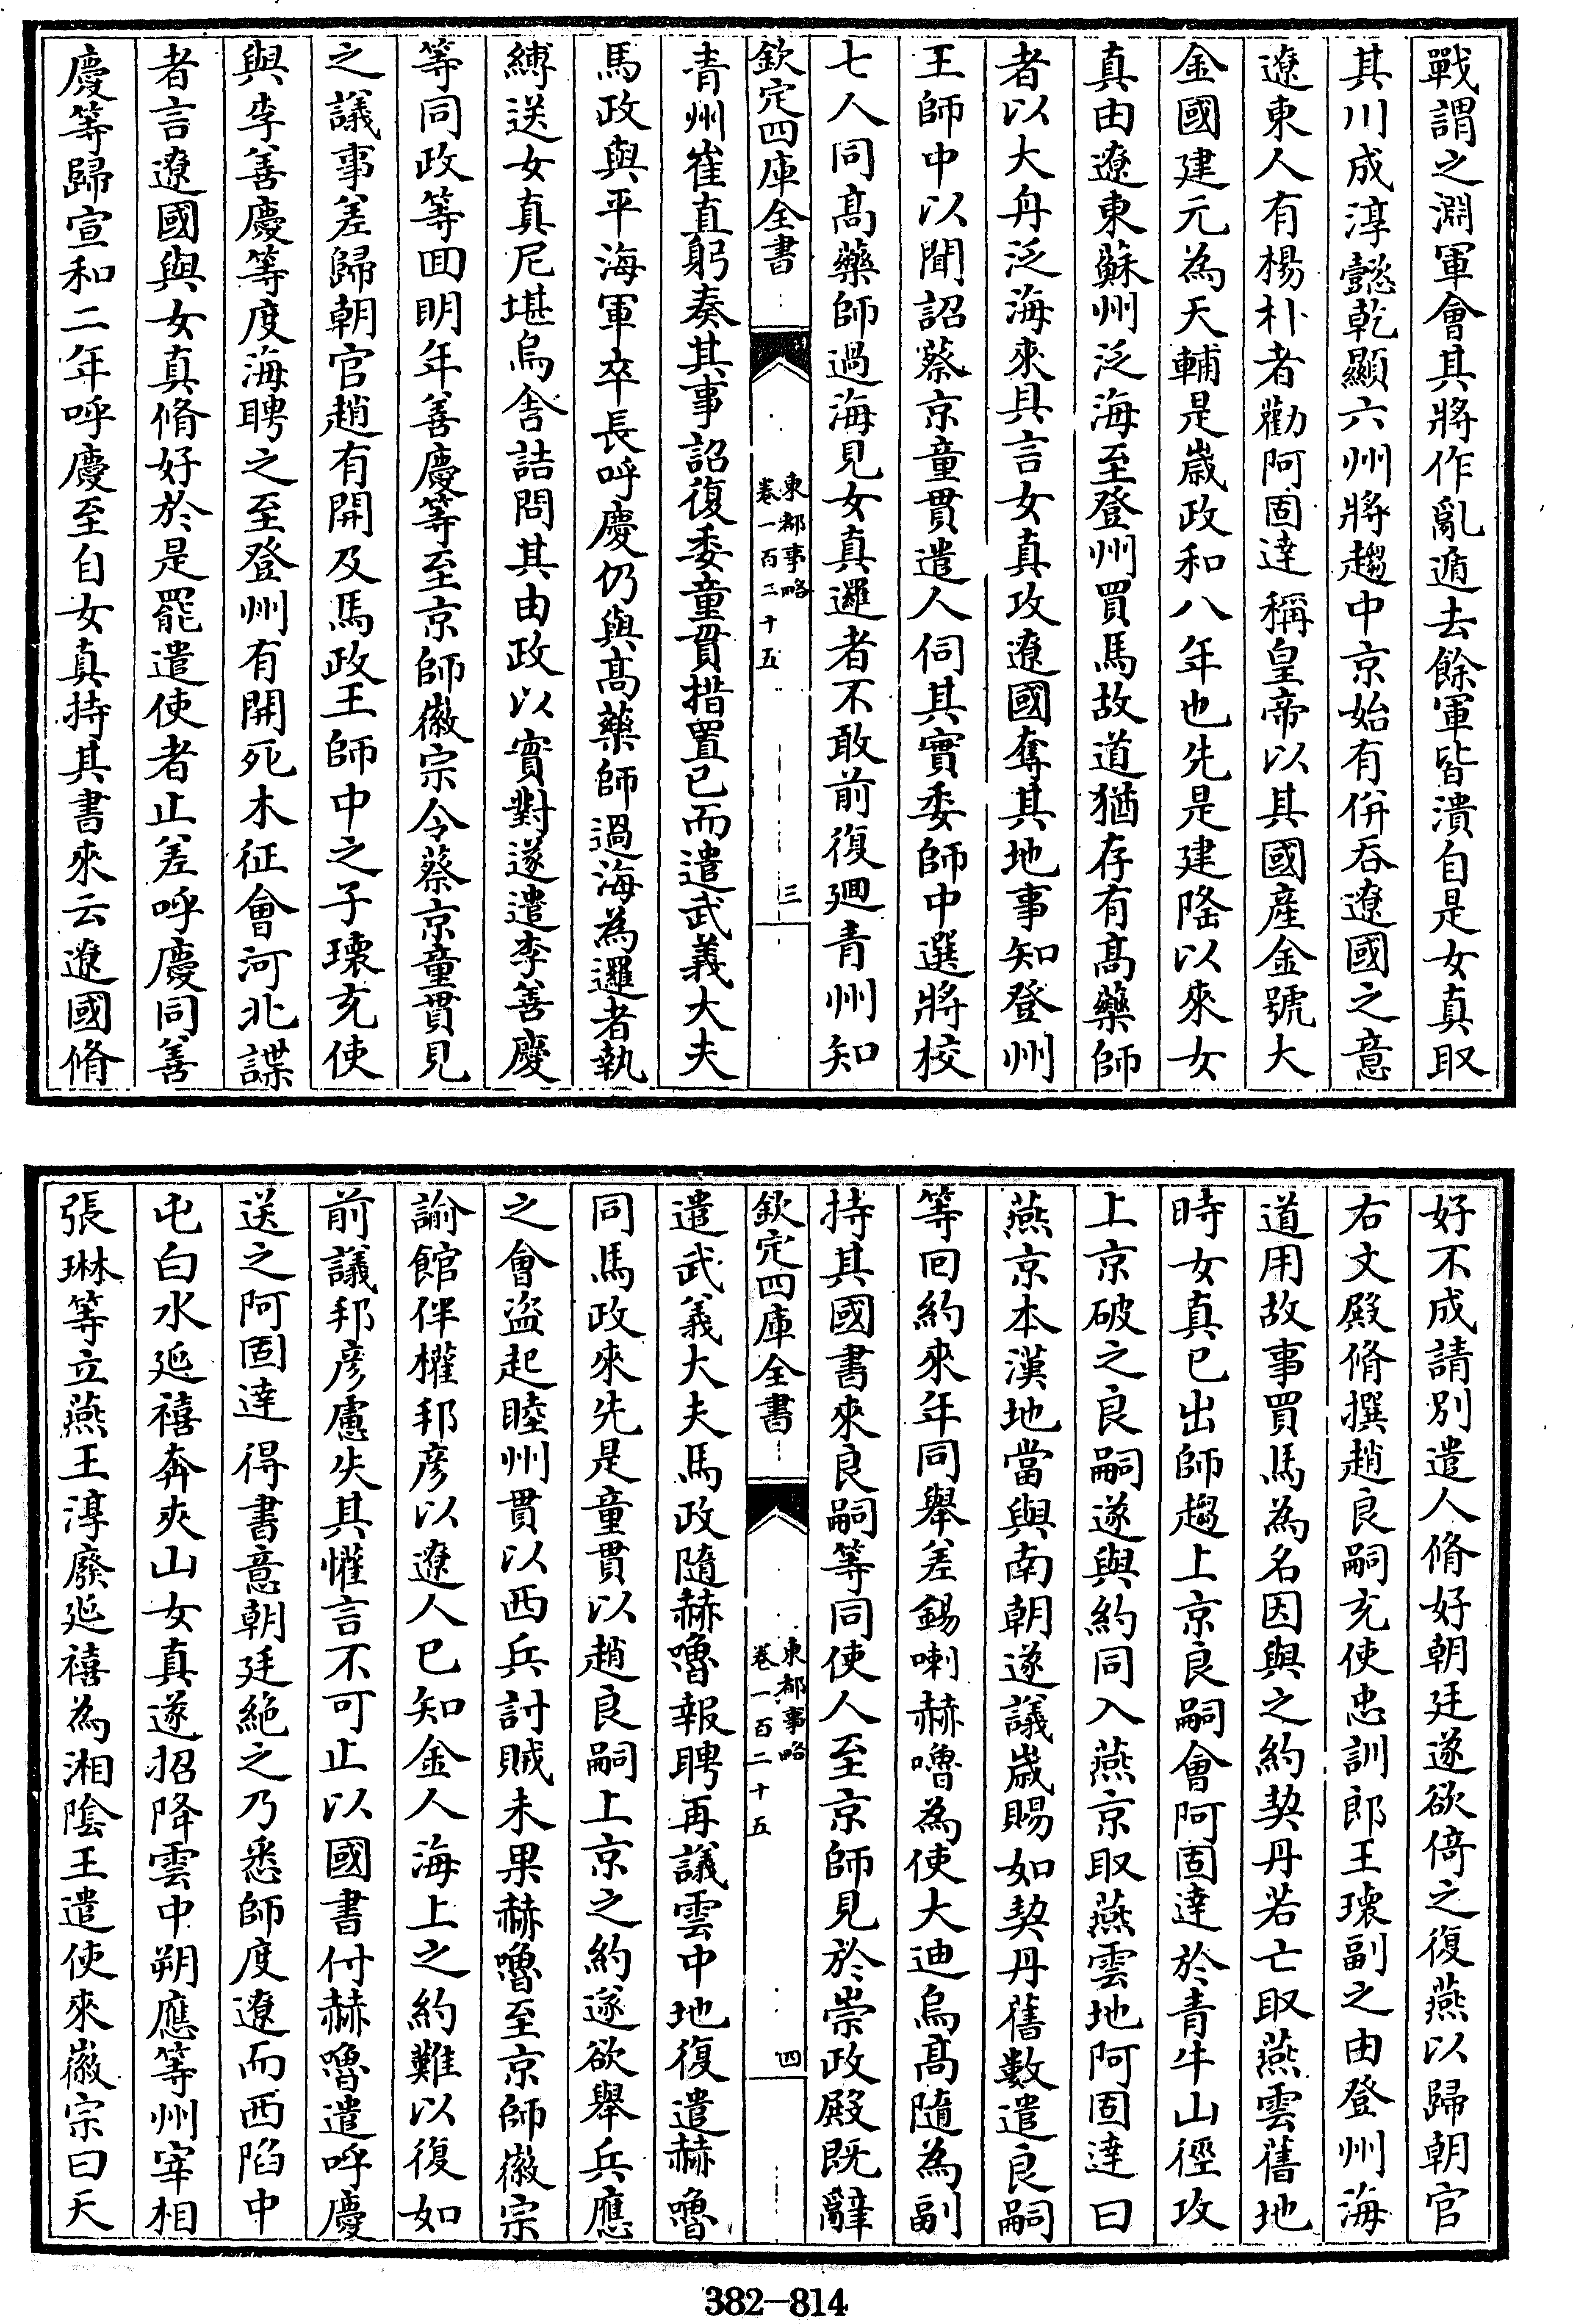 戰謂之淵軍會其將作亂遁去餘軍皆潰自是女真取
其川成淳懿乾顯六州將趨中京始有併吞遼國之意
遼東人有楊朴者勸阿固達稱皇帝以其國產金號大
金國建元為天輔是嵗政和八年也先是建隆以來女
真由遼東蘇州泛海至登州買馬故道猶存有髙藥師
者以大舟泛海來具言女真攻遼國奪其地事知登州
王師中以聞詔蔡京童貫遣人伺其實委師中選將校
七人同髙藥師過海見女真邏者不敢前復廻青州知
欽定四庫全書
東都事略
卷一百二十五
三
青州崔直躬奏其事詔復委童貫措置已而遣武義大夫
馬政與平海軍卒長呼慶仍與髙藥師過海為邏者執
縛送女真尼堪烏舍詰問其由政以實對遂遣李善慶
等同政等囬明年善慶等至京師徽宗令蔡京童貫見
之議事差歸朝官趙有開及馬政王師中之子瓌充使
與李善慶等度海聘之至登州有開死木征會河北諜
者言遼國與女真脩好於是罷遣使者止差呼慶同善
慶等歸宣和二年呼慶至自女真持其書來云遼國脩
好不成請別遣人脩好朝廷遂欲倚之復燕以歸朝官
右文殿脩撰趙良嗣充使忠訓郎王瓌副之由登州海
道用故事買馬為名因與之約契丹若亡取燕雲舊地
時女真已出師趨上京良嗣會阿固達於青牛山徑攻
上京破之良嗣遂與約同入燕京取燕雲地阿固達曰
燕京本漢地當與南朝遂議嵗賜如契丹舊數遣良嗣
等回約來年同舉差錫喇赫嚕為使大迪烏髙隨為副
持其國書來良嗣等同使人至京師見於崇政殿既辭
欽定四庫全書
東都事略
卷一百二十五
四
遣武義大夫馬政隨赫嚕報聘再議雲中地復遣赫嚕
同馬政來先是童貫以趙良嗣上京之約遂欲舉兵應
之會盜起睦州貫以西兵討賊未果赫嚕至京師徽宗
諭館伴權邦彥以遼人已知金人海上之約難以復如
前議邦彥慮失其懽言不可止以國書付赫嚕遣呼慶
送之阿固達得書意朝廷絶之乃悉師度遼而西陷中
屯白水延禧奔夾山女真遂招降雲中朔應等州宰相
張琳等立燕王淳廢延禧為湘隂王遣使來徽宗曰天
382-814